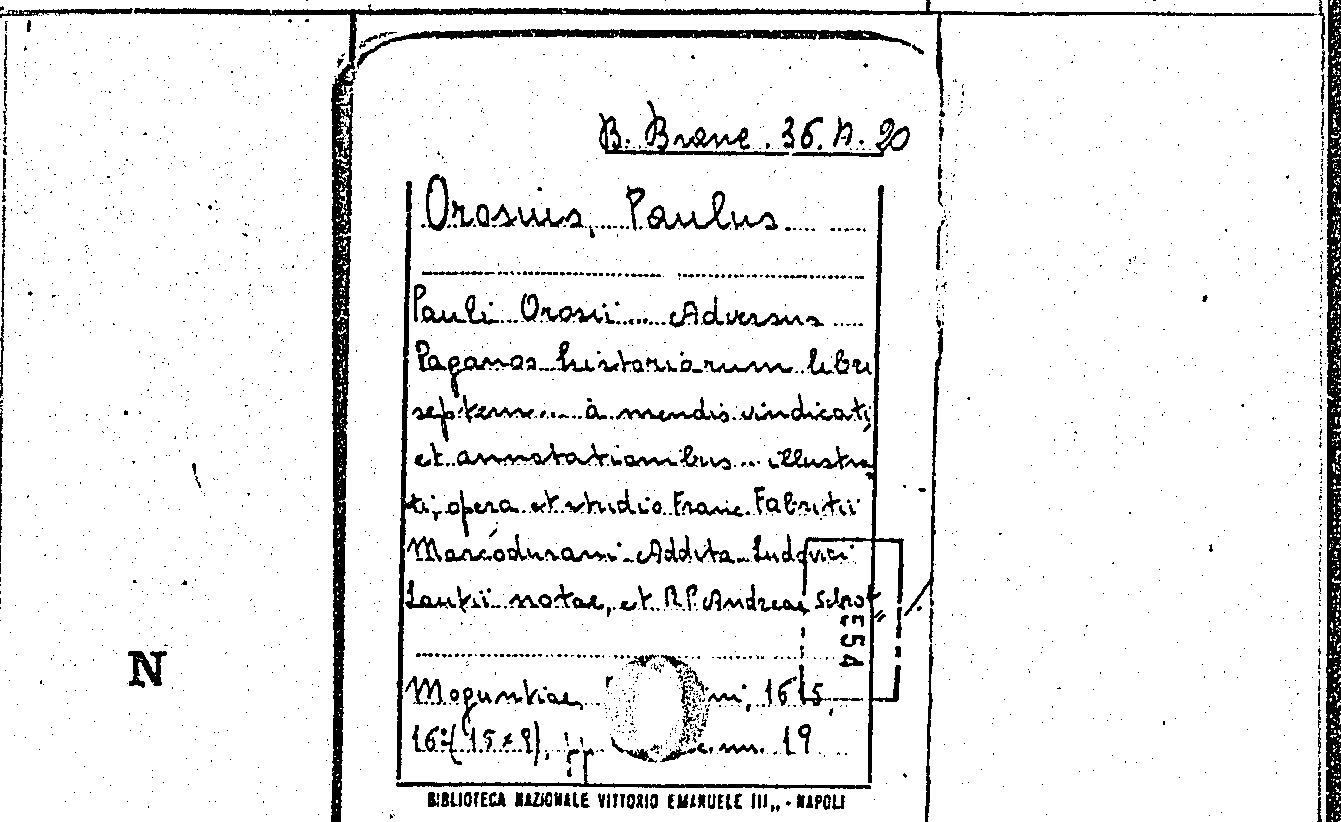 B. Branc. 36. A. 20
Orosius, Paulus
Pauli Orosii ... Adversus
Paganos historiarum libri
septem ... à mendis vindicati,
et annotationibus ... illustra
ti, opera et studio Franc. Fabritii
Marcodurani. Addita Ludovici
Lautii notae, et R.P. Andreae Schot=
E54
N
Moguntiae, 1615,
16° (15x9), pp 19
BIBLIOTECA NAZIONALE VITTORIO EMANUELE III,, - NAPOLI